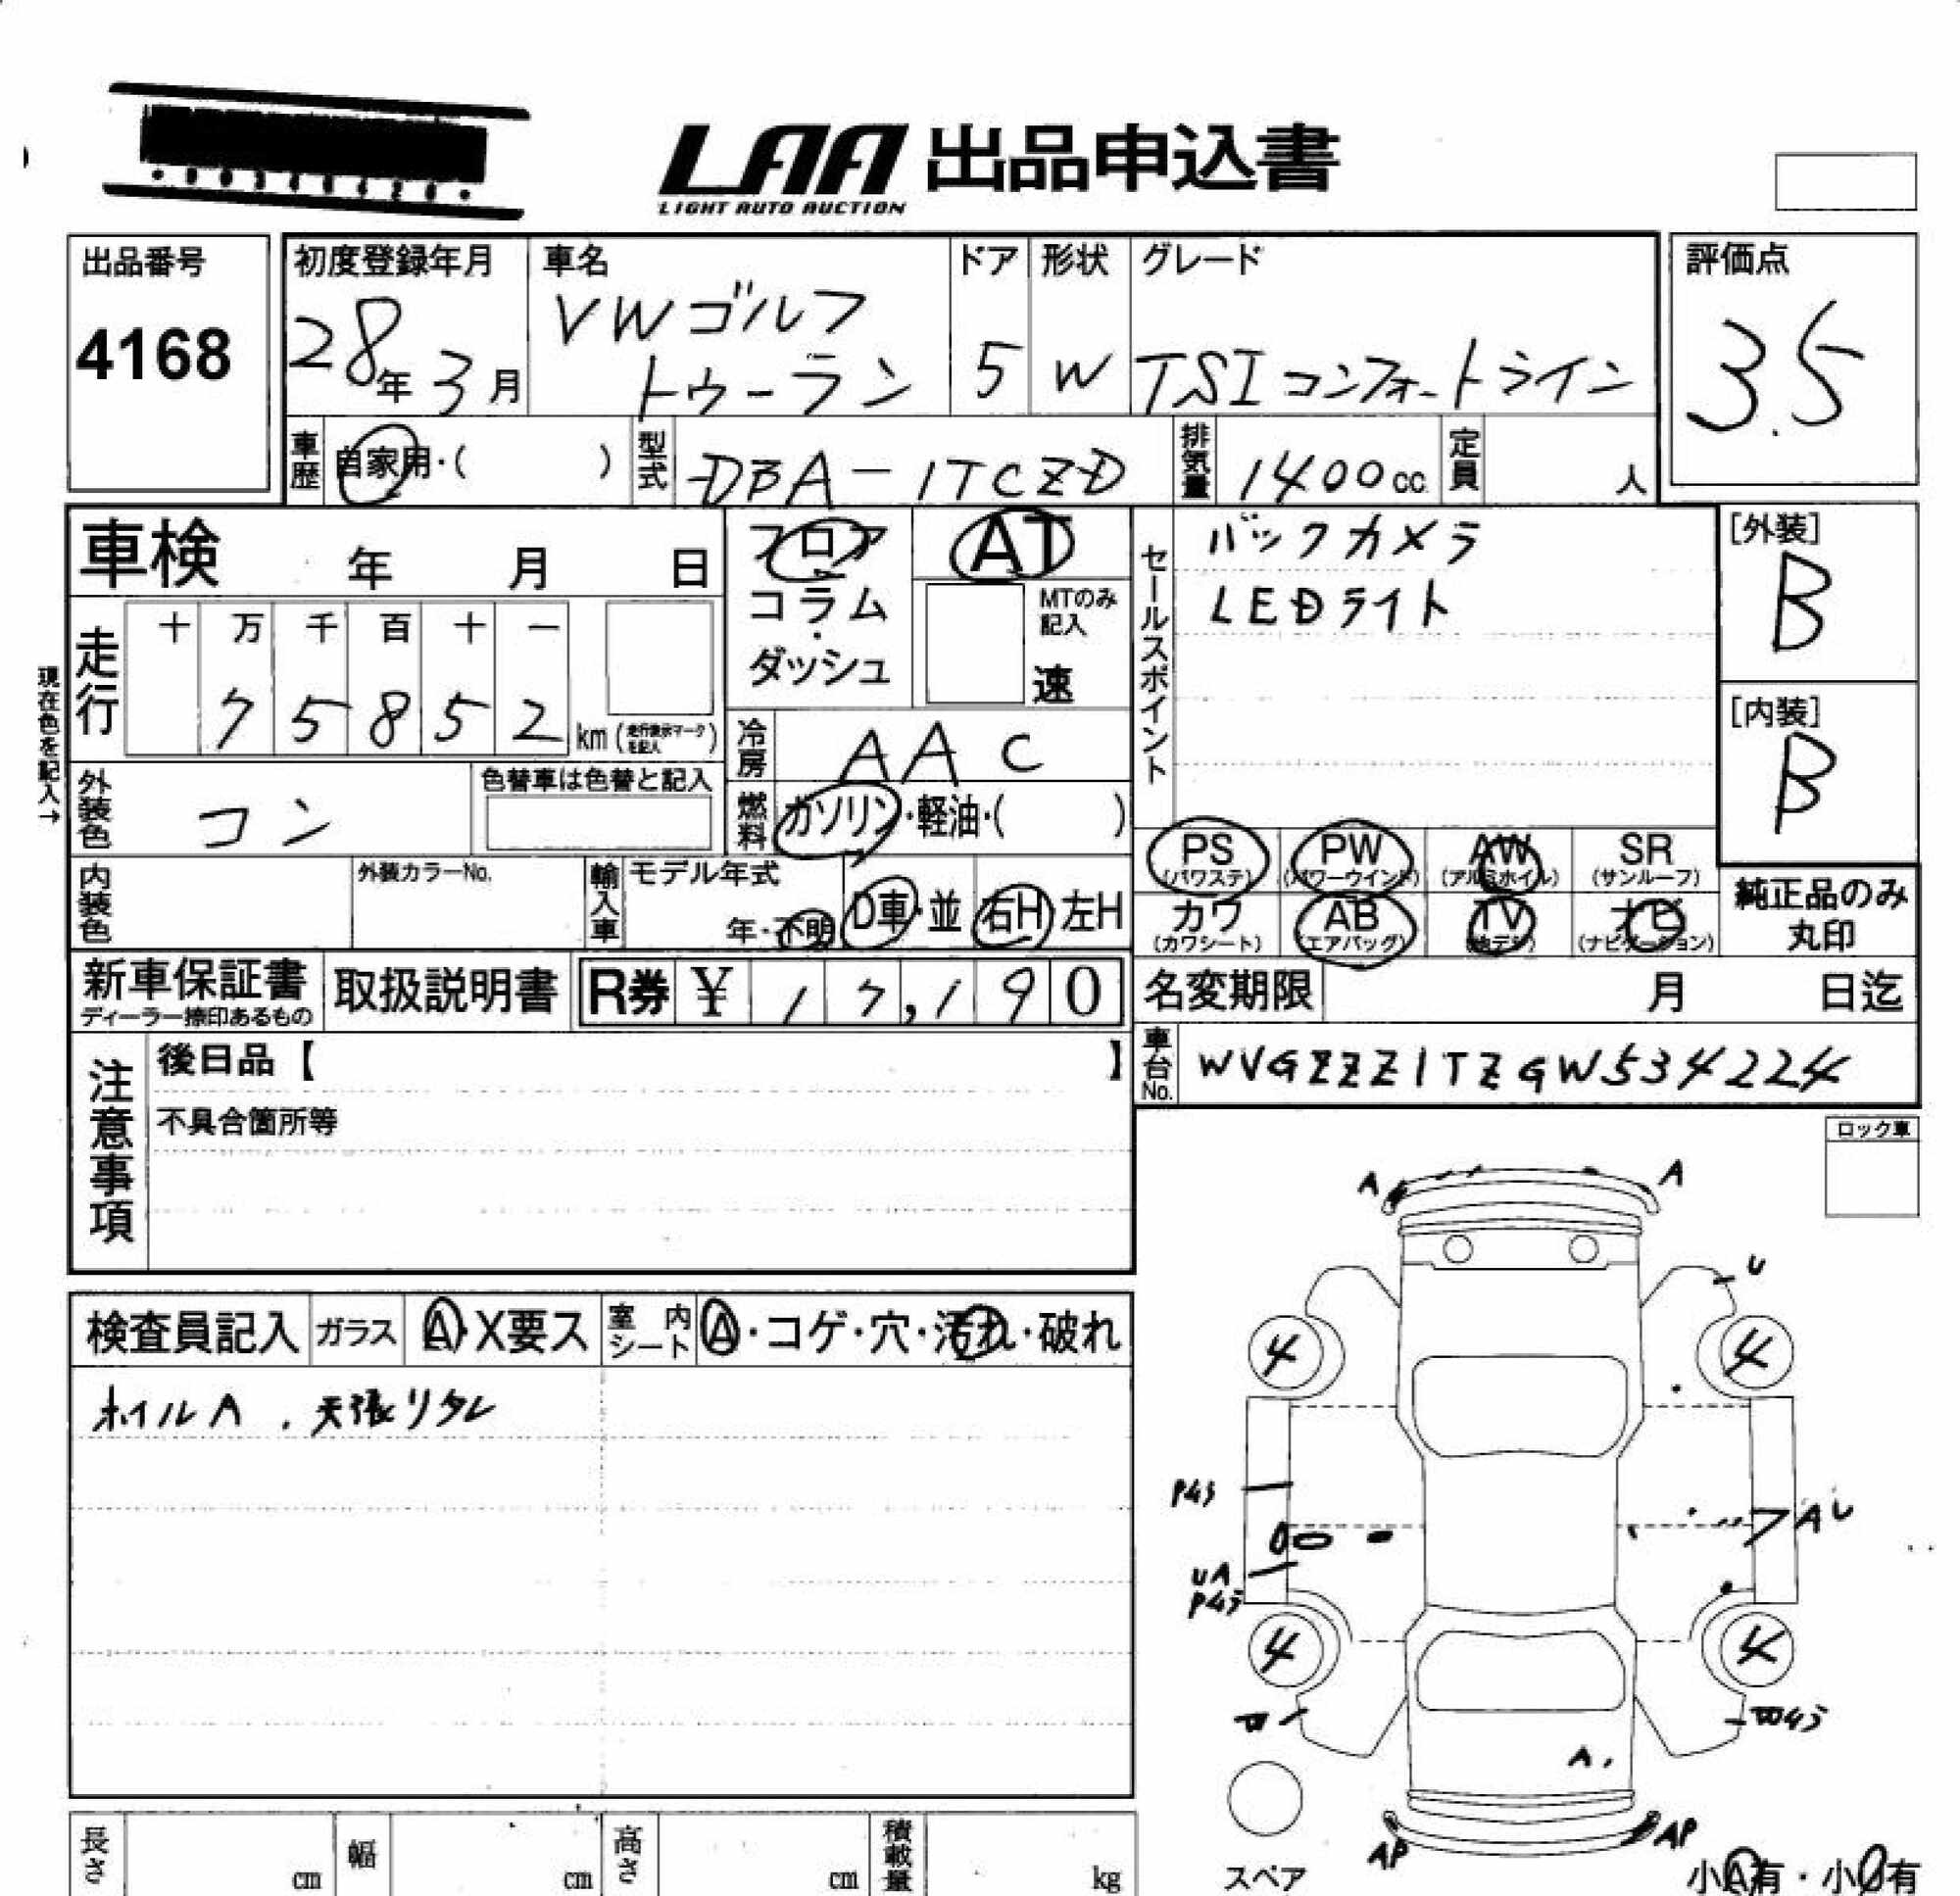 LAA 出品申込書
LIGHT AUTO AUCTION
出品番号
4168
初度登録年月
28年 3月
車名
VWゴルフ
トゥーラン
ドア
5
形状
W
グレード
TSIコンフォートライン
評価点
3.5
車歴 自家用・( )
型式 DBA-1TCZD
排気量 1400cc.
定員 人
車検 年 月 日
フロア
コラム
・
ダッシュ
AT
MTのみ
記入
速
セールスポイント
バックカメラ
LEDライト
[外装]
B
[内装]
B
現在色を記入→
走行
十 万 千 百 十 一
7 5 8 5 2 km
(走行表示マークを記入)
冷房 AAC
燃料 ガソリン・軽油・( )
外装色 コン
色替車は色替と記入
内装色
外装カラーNo.
輸入車
モデル年式
年・不明
D車・並
右H 左H
PS (パワステ)
PW (パワーウインド)
AW (アルミホイル)
SR (サンルーフ)
カワ (カワシート)
AB (エアバッグ)
TV (地デジ)
ナビ (ナビゲーション)
純正品のみ
丸印
新車保証書
ディーラー捺印あるもの
取扱説明書
R券 ¥ 17,190
名変期限 月 日迄
車台No. WVGZZZ1TZGW534224
注意事項
後日品【 】
不具合箇所等
ロック車
検査員記入
ガラス A・X要ス
室内シート A・コゲ・穴・汚れ・破れ
ホイルA . 天張リタレ
A A
U
4 4
P43
AU
UA
P43
4 4
A.
AP AP
スペア
小A有・小U有
長さ cm
幅 cm
高さ cm
積載量 kg